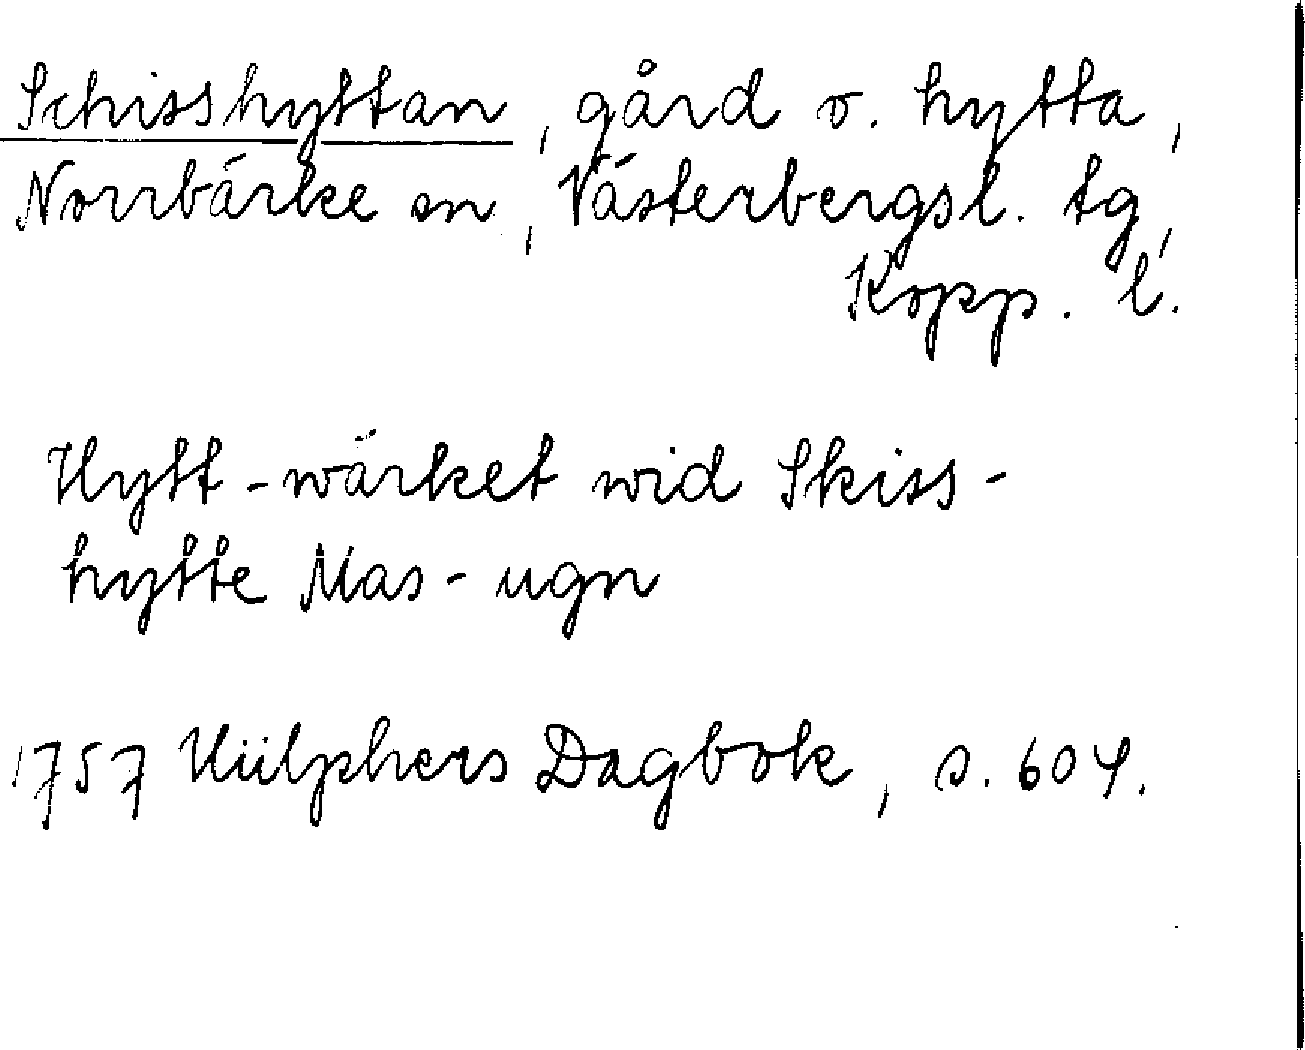 Schisshyttan, gård o. hytta,
Norrbärke sn, Västerbergsl. tg,
Kopp. l.
Hytt-wärket wid Skiss-
hytte Mas-ugn
1757 Hülphers Dagbok, s. 604.